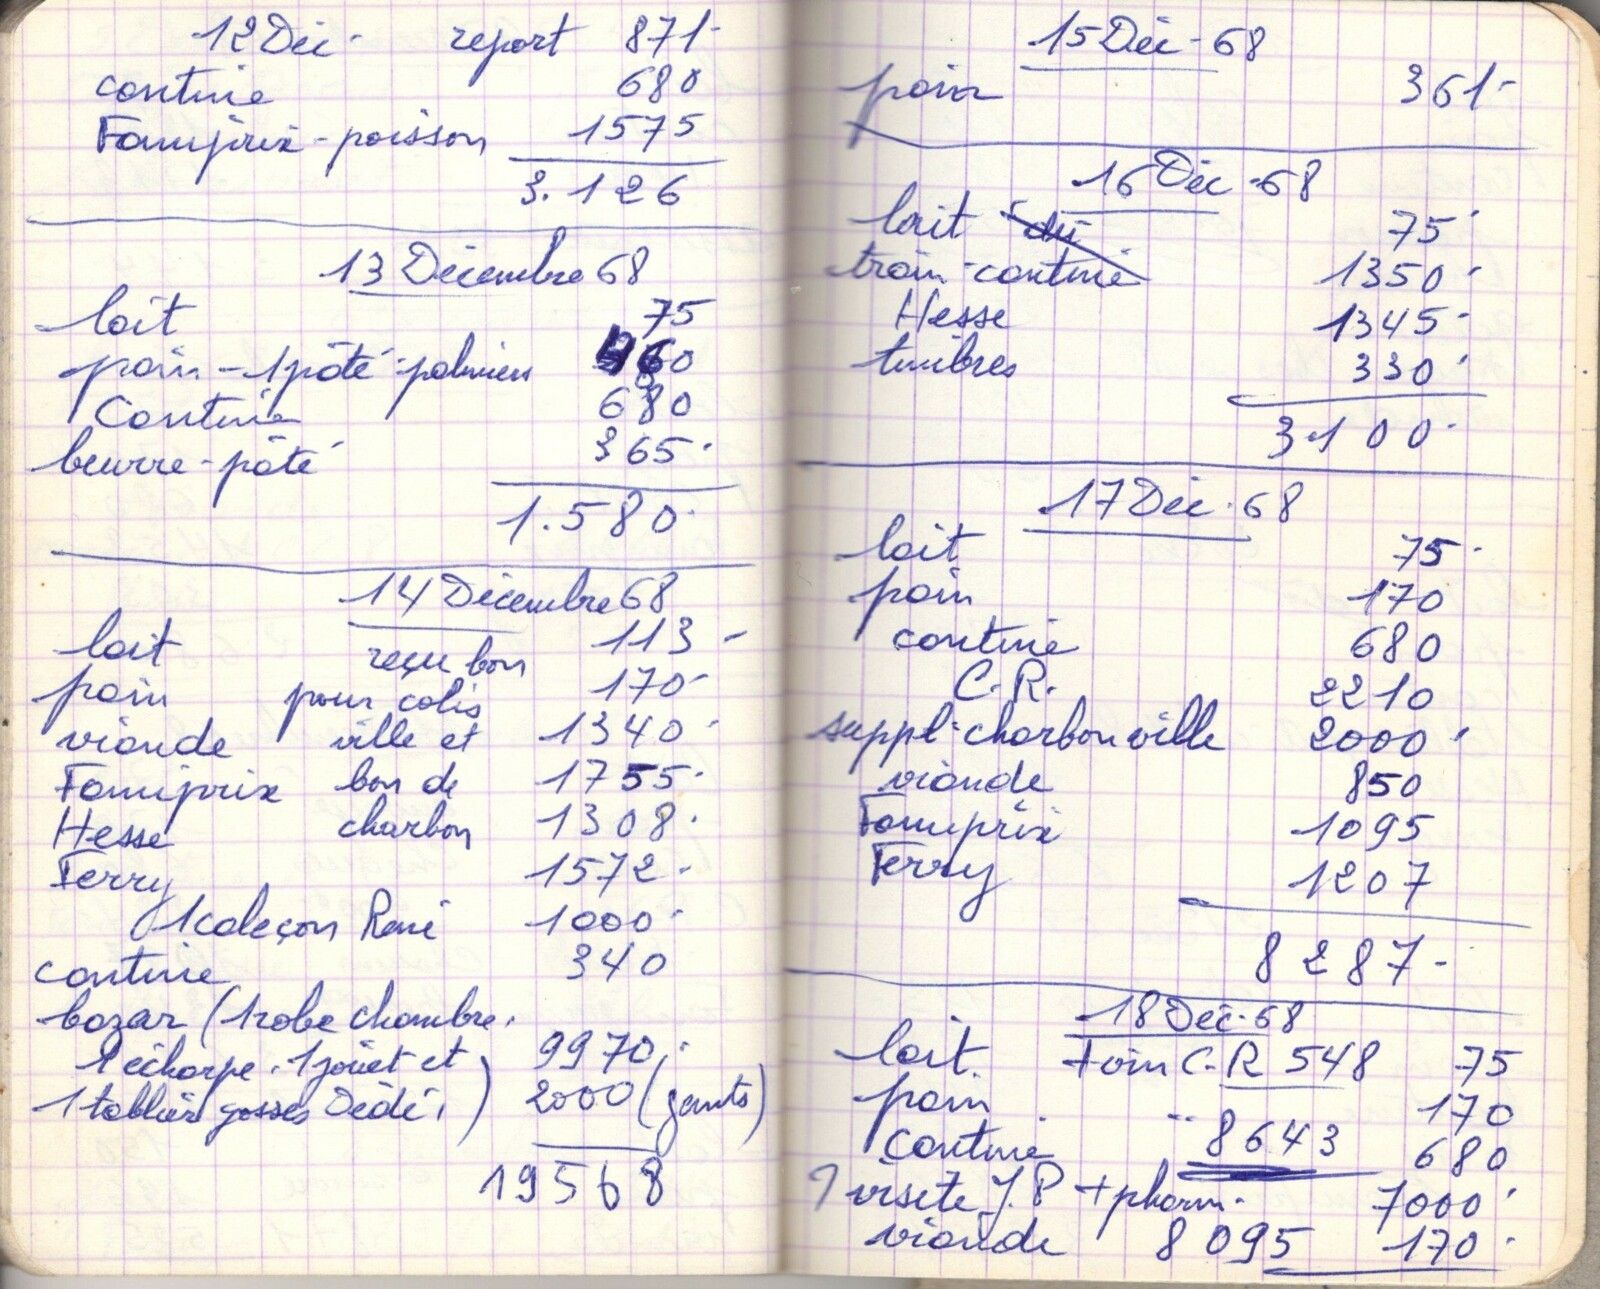 12 Déc - report 871-
cantine 680
Familiprix - poisson 1575
3.126
13 Décembre 68
lait 75
pain - 1 pâté - palmiers 460
Cantine 680
beurre - pâté 365-
1.580-
14 Décembre 68
lait 113 -
reçu bon
pain pour colis 170-
viande ville et 1340-
Famiprix bon de 1755-
Hesse charbon 1308-
Ferry 1572-
1 caleçon René 1000-
cantine 340
bazar (1 robe chambre.
1 écharpe. 1 jouet et 9970.-
1 tablier gosses Dédé.) 2000 (gants)
19568
15 Déc - 68
pain 361-
16 Déc - 68
lait 75-
train - cantine 1350-
Hesse 1345-
timbres 330-
3100-
17 Déc - 68
lait 75-
pain 170
cantine 680
C.R. 2210
suppl. charbon ville 2000-
viande 850
Famiprix 1095
Ferry 1207
8287-
18 Déc - 68
lait + vin C.R 548 75
pain 170
cantine 8643 680
visite J.P + pharm. 7000-
viande 8095 170-